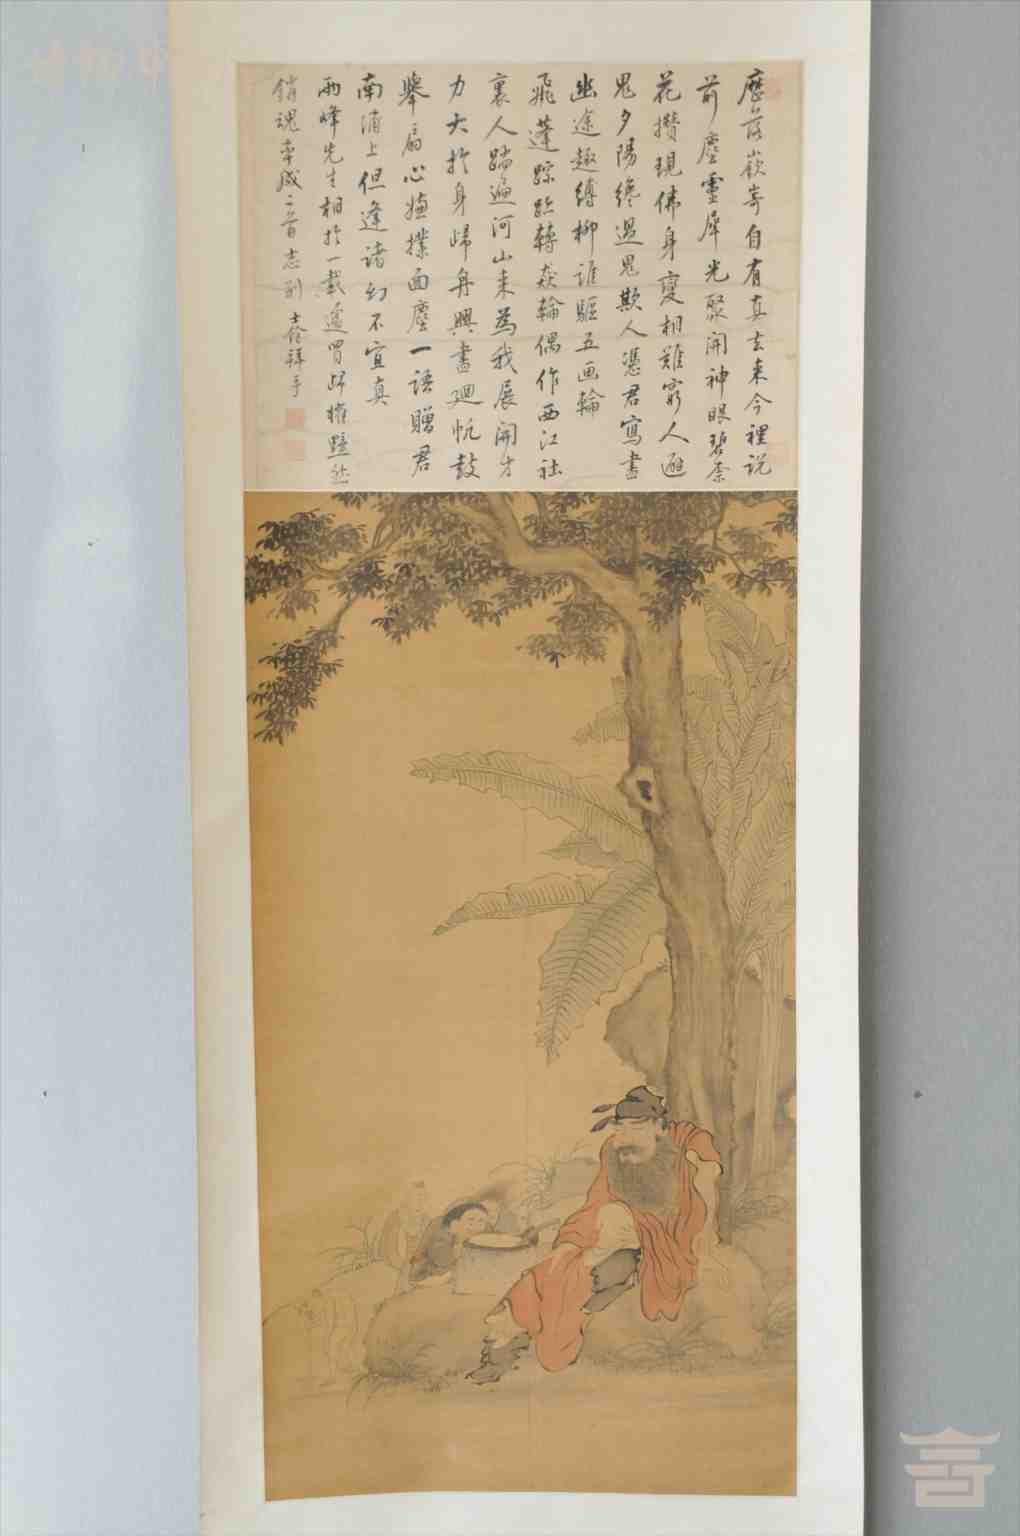 歷落嶔奇自有真去來今裡說
前塵靈犀光聚開神眼碧柰
花攢現佛身變相難窮人避
鬼夕陽纔過鬼欺人憑君寫盡
幽途趣縛柳誰驅五画輪
飛蓬蹤跡轉猋輪偶作西江社
裏人踏遍河山来為我展開才
力大於身歸舟興盡廻帆鼓
舉扇心嫌撲面塵一語贈君
南浦上但逢諸幻不宜真
兩峰先生相於一載邅胃歸權黯然
銷魂率成二首志別 拜手